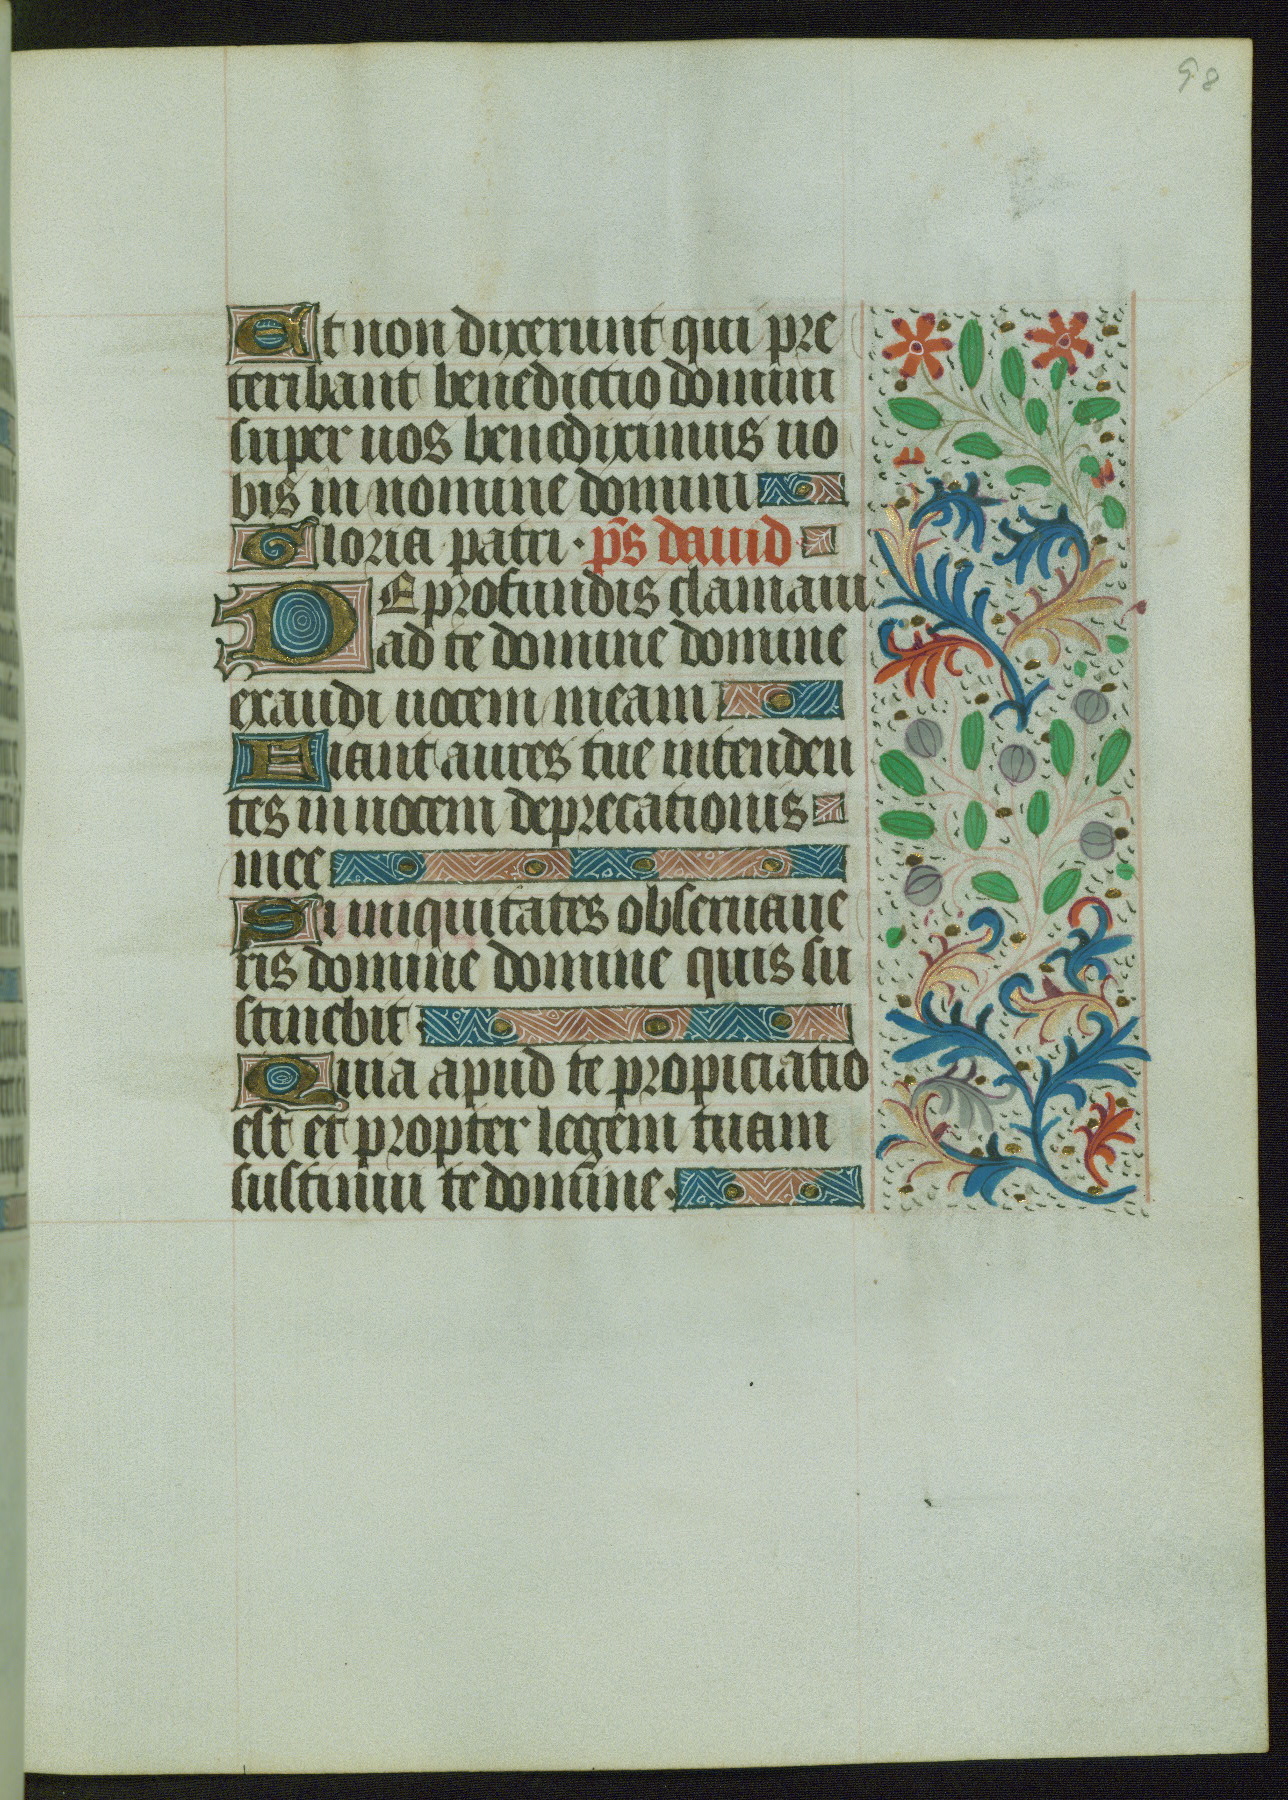 98
Et non dixerunt qui pre
teribant benedictio domini
super uos benediximus uo
bis in nomine domini
Gloria patri · p̄s dauid
DE profundis clamaui
ad te domine domine
exaudi uocem meam
Fiant aures tue intenden
tes in uocem deprecationis
mee
Si iniquitates obseruaue
ris domine domine quis su
stinebit
Quia apud te propiciatio
est et propter legem tuam
sustinui te domine.